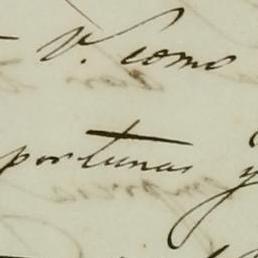 V. como
oportunas y